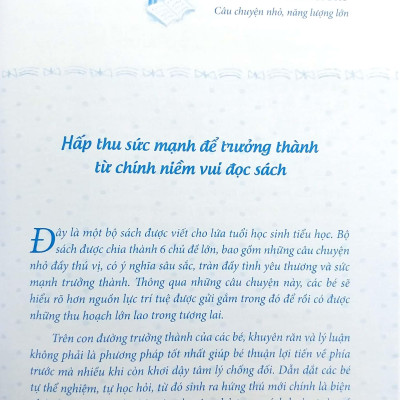 Câu chuyện nhỏ, năng lượng lớn
Hấp thu sức mạnh để trưởng thành
từ chính niềm vui đọc sách
Đây là một bộ sách được viết cho lứa tuổi học sinh tiểu học. Bộ
sách được chia thành 6 chủ đề lớn, bao gồm những câu chuyện
nhỏ đầy thú vị, có ý nghĩa sâu sắc, tràn đầy tình yêu thương và sức
mạnh trưởng thành. Thông qua những câu chuyện này, các bé sẽ
hiểu rõ hơn nguồn lực trí tuệ được gửi gắm trong đó để rồi có được
những thu hoạch lớn lao trong tương lai.
Trên con đường trưởng thành của các bé, khuyên răn và lý luận
không phải là phương pháp tốt nhất giúp bé thuận lợi tiến về phía
trước mà nhiều khi còn khơi dậy tâm lý chống đối. Dẫn dắt các bé
tự thể nghiệm, tự học hỏi, từ đó sinh ra hứng thú mới chính là biện